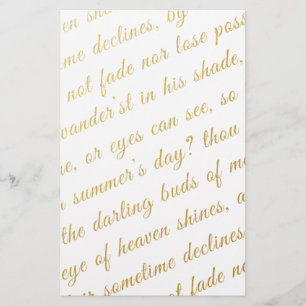 en sha
me declines, by
not fade nor lose poss
wander'st in his shade,
ne, or eyes can see, so
summer's day? thou
the darling buds of m
eye of heaven shines, a
sometime declines
t fade no